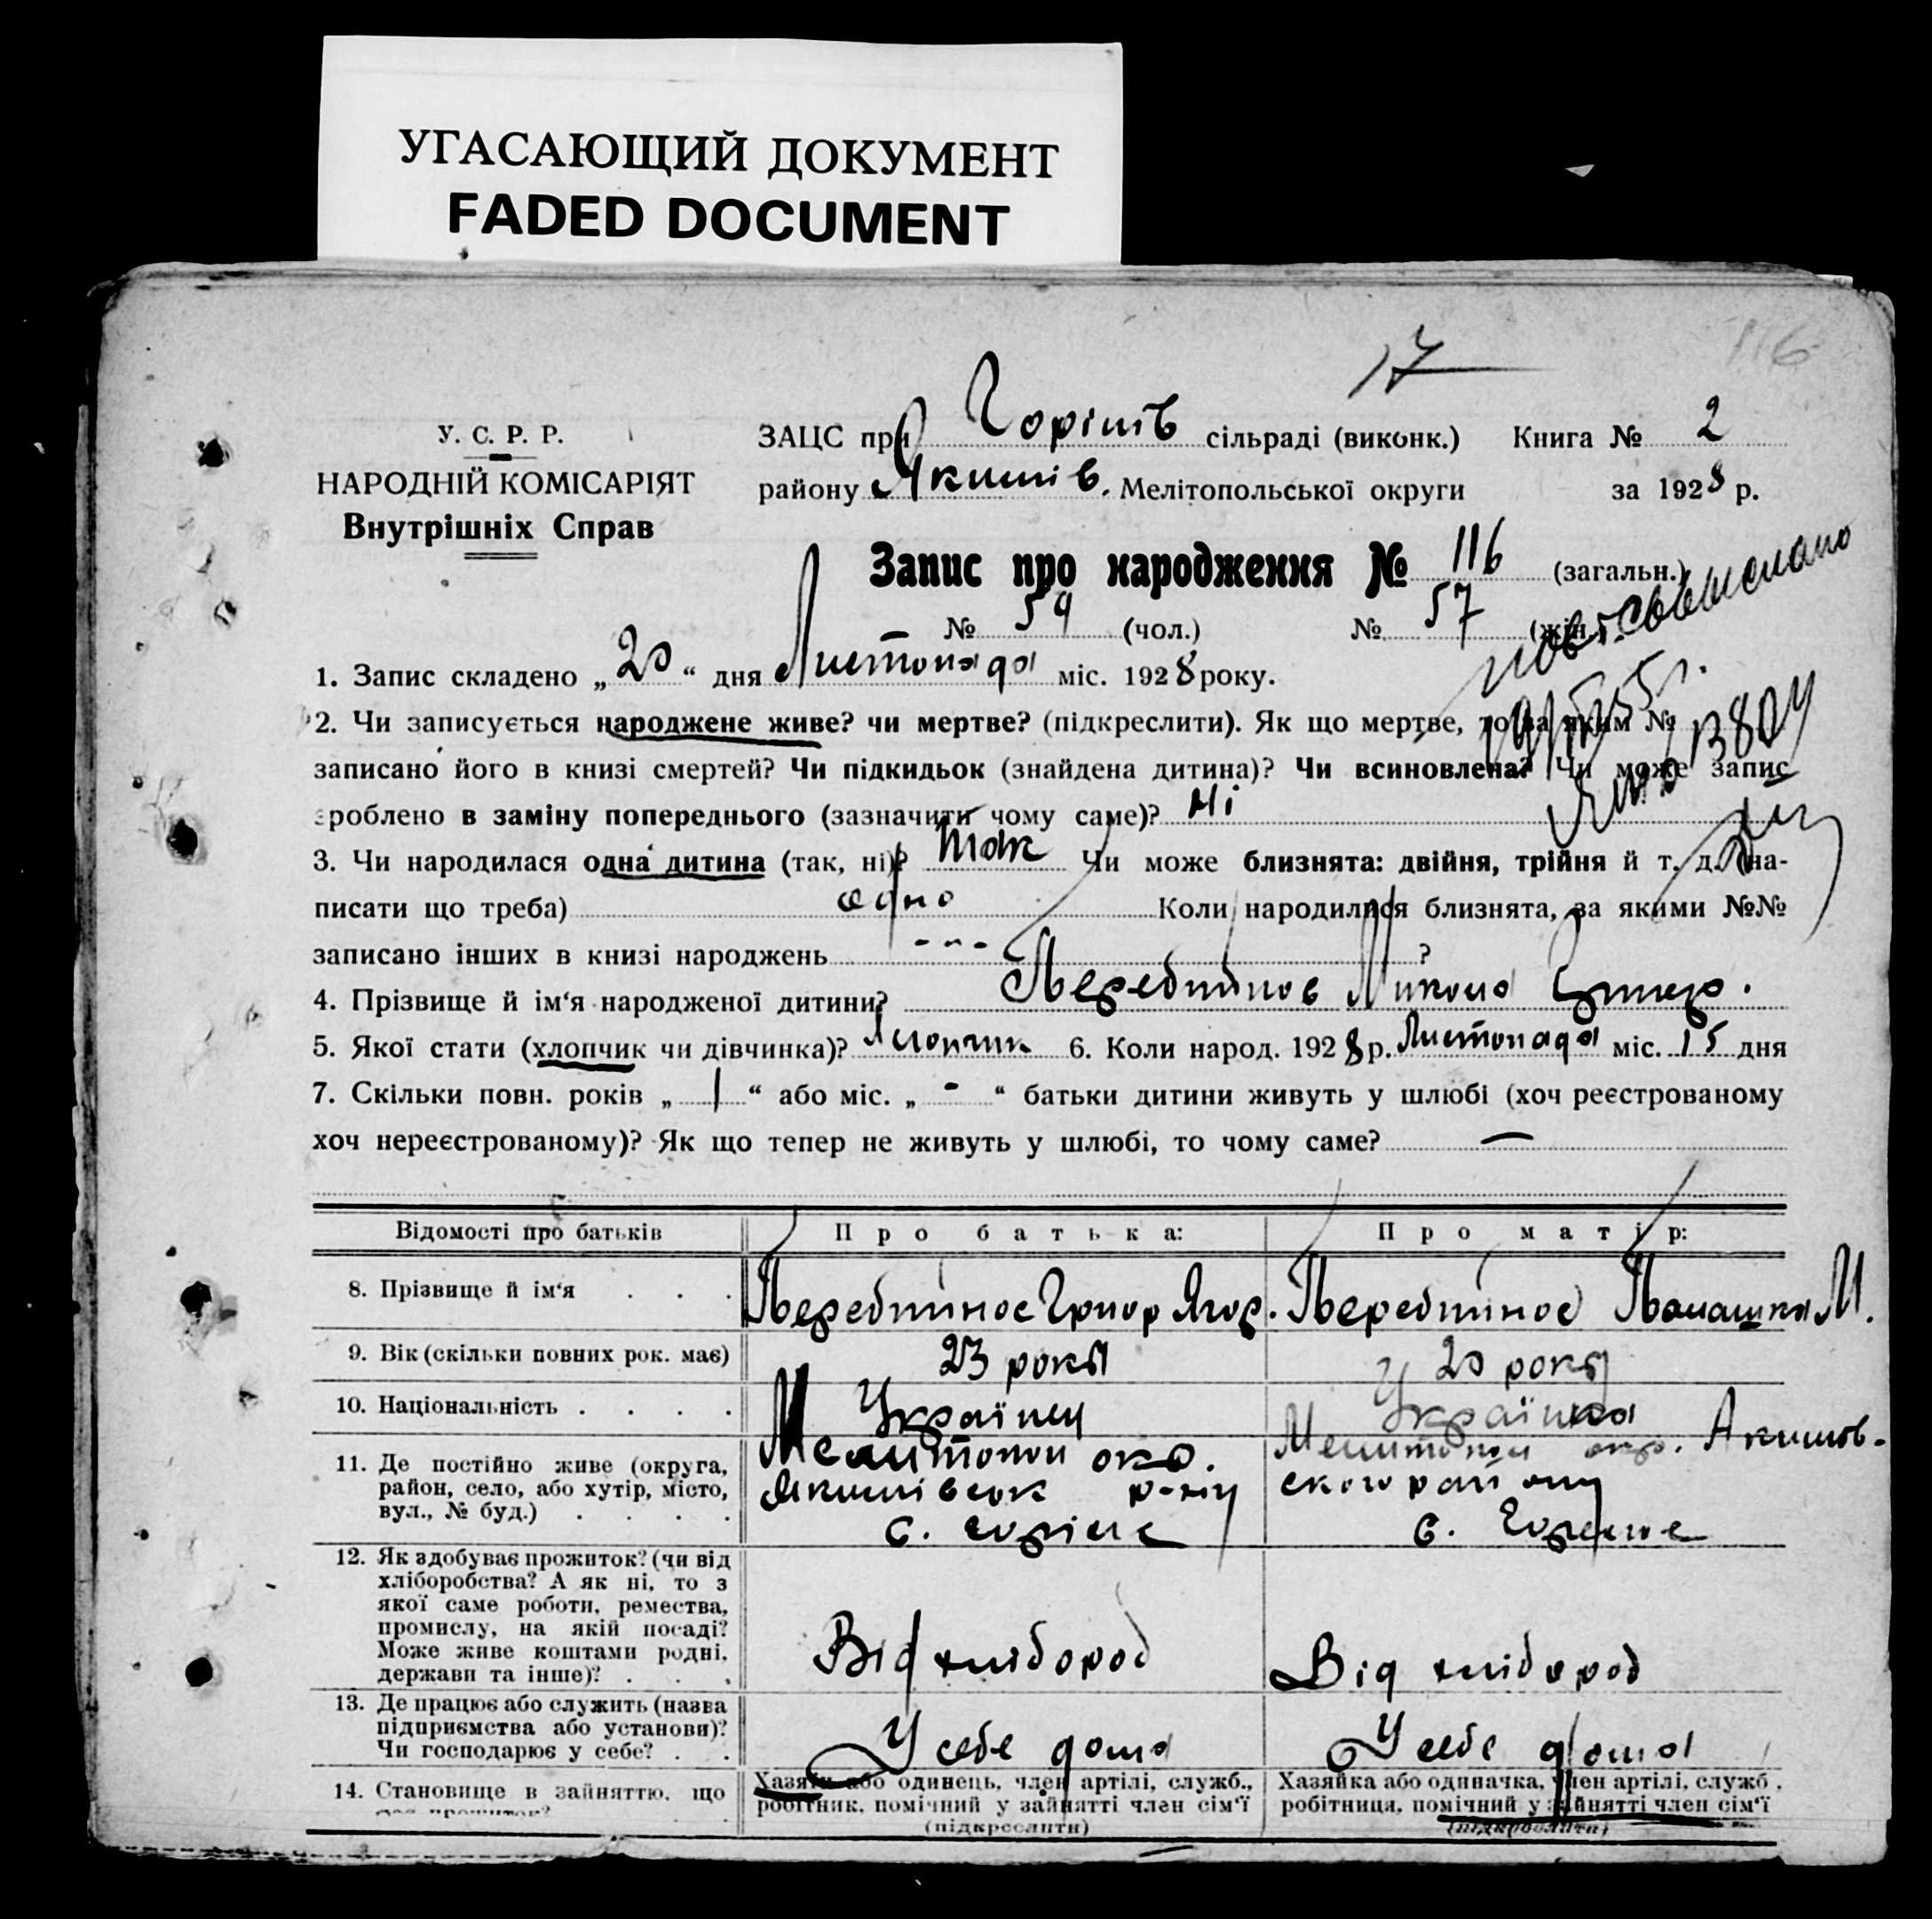 УГАСАЮЩИЙ ДОКУМЕНТ
FADED DOCUMENT
17
116
У. С. Р. Р.
НАРОДНІЙ КОМІСАРІЯТ
Внутрішніх Справ
ЗАЦС при Горіпів сільраді (виконк.) Книга № 2
району Якимів. Мелітопольської округи за 1928 р.
Запис про народження № 116 (загальн.)
№ 59 (чол.) № 57 (жін.)
1. Запис складено „20“ дня Листопада міс. 1928 року.
2. Чи записується народжене живе? чи мертве? (підкреслити). Як що мертве, то за яким №
записано його в книзі смертей? Чи підкидьок (знайдена дитина)? Чи всиновлена? Чи може запис
зроблено в заміну попереднього (зазначити чому саме)? Ні
3. Чи народилася одна дитина (так, ні)? Так Чи може близнята: двійня, трійня й т. д. (на-
писати що треба) одно Коли народилися близнята, за якими №№
записано інших в книзі народжень - - - ?
4. Прізвище й ім‘я народженої дитини? Микола
5. Якої стати (хлопчик чи дівчинка)? Хлопчик 6. Коли народ. 1928 р. Листопада міс. 15 дня
7. Скільки повн. років „ 1 “ або міс. „ - “ батьки дитини живуть у шлюбі (хоч реєстрованому
хоч нереєстрованому)? Як що тепер не живуть у шлюбі, то чому саме? —
Відомості про батьків Про батька: Про матір:
8. Прізвище й ім‘я . . . Григор Ягор. М.
9. Вік (скільки повних рок. має) 23 рокы 20 рокы
10. Національність . . . . Українец Українка
11. Де постійно живе (округа, район, село, або хутір, місто, вул., № буд.) . . . .
Мелитопол окр.
Якимівськ р-ну
Мелитопол окр. Акимов-
ского району
12. Як здобуває прожиток? (чи від
хліборобства? А як ні, то з
якої саме роботи, ремества,
промислу, на якій посаді?
Може живе коштами родні,
держави та інше)? . . .
Від хлібороб Від хлібороб
13. Де працює або служить (назва
підприємства або установи)?
Чи господарює у себе? . .
У себе дома У себе дома
14. Становище в зайняттю, що
Хазяїн або одинець, член артілі, служб.,
робітник, помічний у зайнятті член сім‘ї
(підкреслити)
Хазяйка або одиначка, член артілі, служб.,
робітниця, помічний у зайнятті член сім‘ї
(підкреслити)